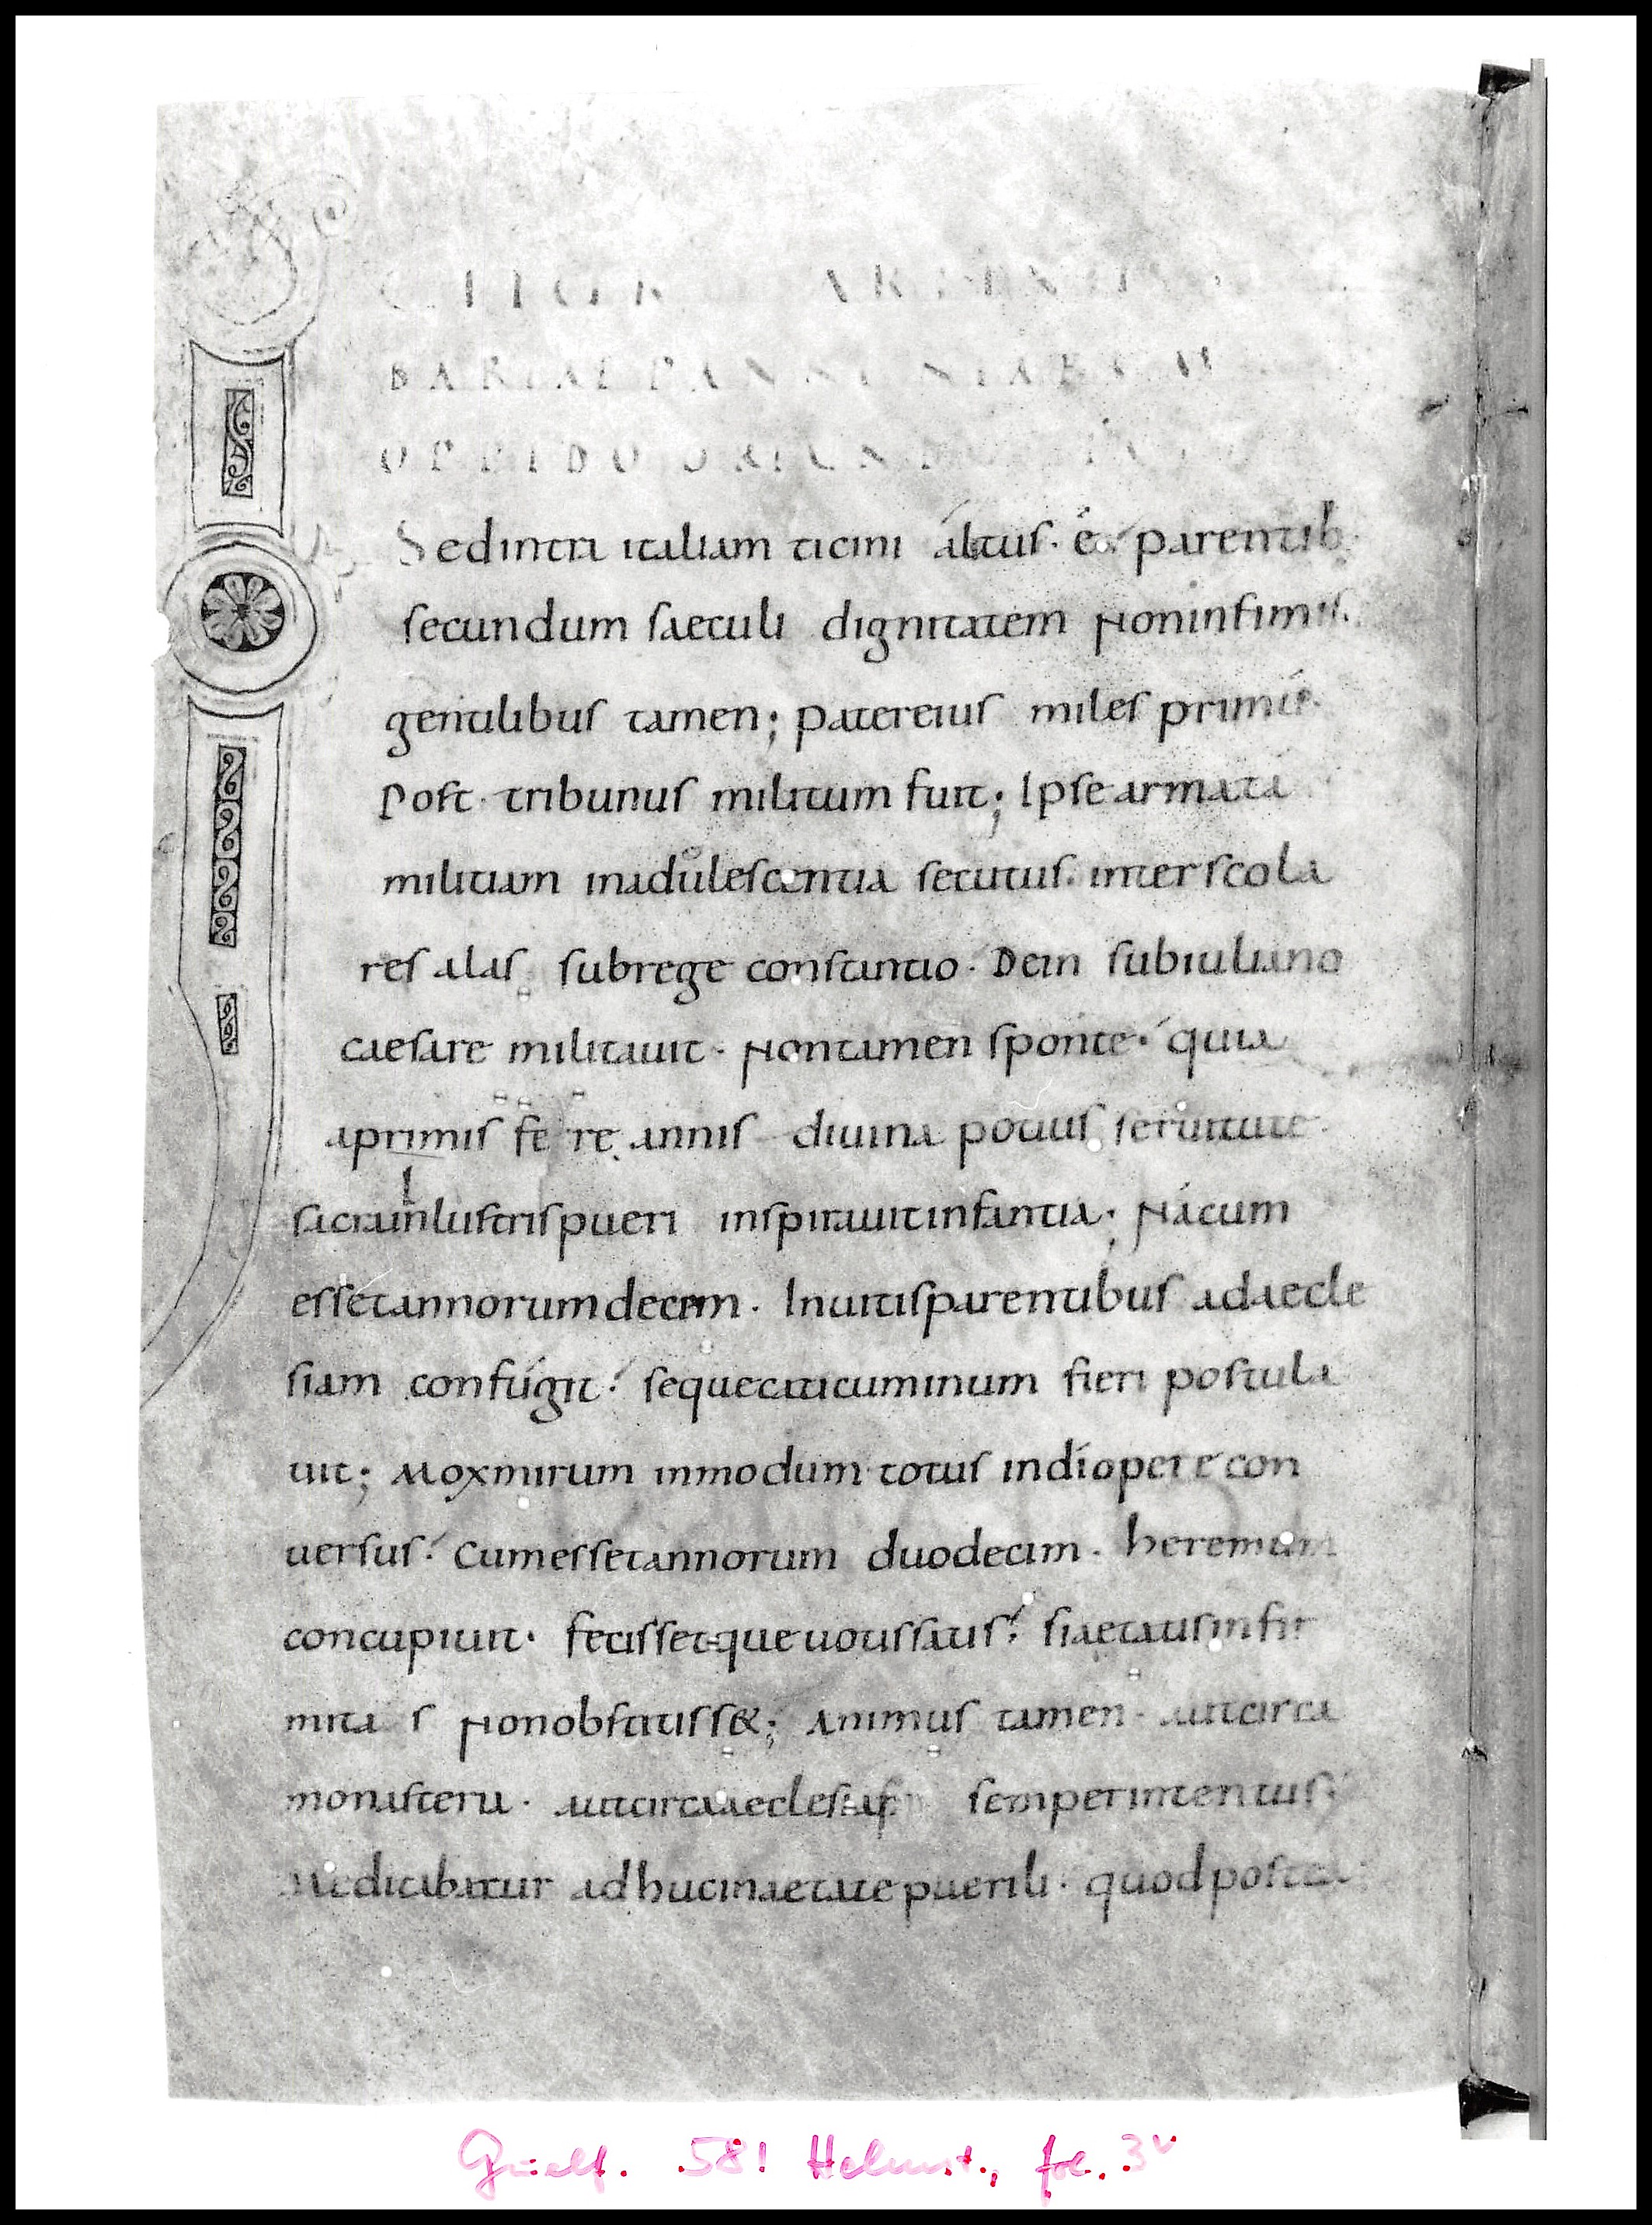 OPPIDO ORIUNDUS FUIT
Sedintra italiam ticini altus. e parentib;
secundum saeculi dignitatem Noninfimis.
gentilibus tamen; patereius miles primu
Post tribunus militum fuit; Ipse armata
militiam inadulescentia secutus. inter scola
res alas subrege constantio. Dein subiuliano
caesare militauit. Nontamen sponte. quia
aprimis fere annis diuina potius seruitute.
sacrainlustrispueri inspirauitinfantia; Nacum
essetannorumdecem. Inuitisparentibus adaecle
siam confugit. sequecaticuminum fieri postula
uit; Moxmirum inmodum totus indiopere con
uersus. Cumessetannorum duodecim. heremum
concupiuit. fecissetqueuotissatis. siaetatisinfir
mitas Nonobstitiss&; Animus tamen. autcirca
monasteria. autcircaaeclesias semperintentus;
Meditabatur adhucinaetatepuerili. quodpostea
Guelf. 581 Helmst., fol. 3v